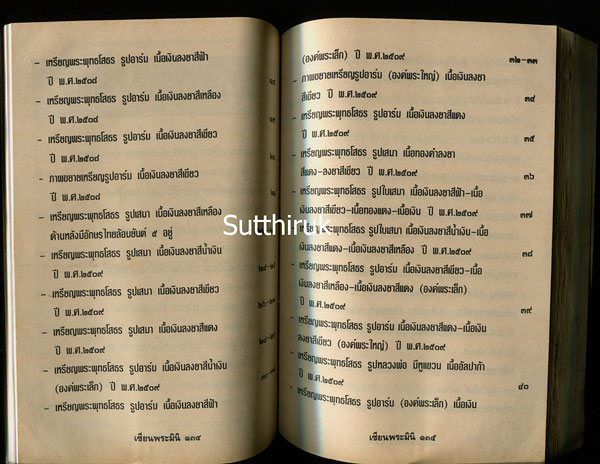 - เหรียญพระพุทธโสธร รูปอาร์ม เนื้อเงินลงยาสีฟ้า
ปี พ.ศ.๒๕๐๘
- เหรียญพระพุทธโสธร รูปอาร์ม เนื้อเงินลงยาสีเหลือง
ปี พ.ศ.๒๕๐๘
- เหรียญพระพุทธโสธร รูปอาร์ม เนื้อเงินลงยาสีเขียว
ปี พ.ศ.๒๕๐๘
- ภาพขยายเหรียญรูปอาร์ม เนื้อเงินลงยาสีเขียว
ปี พ.ศ.๒๕๐๘
- เหรียญพระพุทธโสธร รูปเสมา เนื้อเงินลงยาสีเหลือง
ด้านหลังมีอักษรไทยล้อมยันต์ ๕ อยู่
- เหรียญพระพุทธโสธร รูปเสมา เนื้อเงินลงยาสีน้ำเงิน
ปี พ.ศ.๒๕๐๙
- เหรียญพระพุทธโสธร รูปเสมา เนื้อเงินลงยาสีเขียว
ปี พ.ศ.๒๕๐๙
- เหรียญพระพุทธโสธร รูปเสมา เนื้อเงินลงยาสีแดง
ปี พ.ศ.๒๕๐๙
- เหรียญพระพุทธโสธร รูปอาร์ม เนื้อเงินลงยาสีน้ำเงิน
(องค์พระเล็ก) ปี พ.ศ.๒๕๐๙
- เหรียญพระพุทธโสธร รูปอาร์ม เนื้อเงินลงยาสีฟ้า
เซียนพระมินิ ๑๓๔
(องค์พระเล็ก) ปี พ.ศ.๒๕๐๙ ๓๒-๓๓
- ภาพขยายเหรียญรูปอาร์ม (องค์พระใหญ่) เนื้อเงินลงยา
สีเขียว ปี พ.ศ.๒๕๐๙ ๓๔
- เหรียญพระพุทธโสธร รูปอาร์ม เนื้อเงินลงยาสีแดง
ปี พ.ศ.๒๕๐๙ ๓๕
- เหรียญพระพุทธโสธร รูปเสมา เนื้อทองคำลงยา
สีแดง-ลงยาสีเขียว ปี พ.ศ.๒๕๐๙ ๓๖
- เหรียญพระพุทธโสธร รูปใบเสมา เนื้อเงินลงยาสีฟ้า-เนื้อ
เงินลงยาสีเขียว-เนื้อทองแดง-เนื้อเงิน ปี พ.ศ.๒๕๐๙ ๓๗
- เหรียญพระพุทธโสธร รูปใบเสมา เนื้อเงินลงยาสีน้ำเงิน-เนื้อ
เงินลงยาสีแดง-เนื้อเงินลงยาสีเหลือง ปี พ.ศ.๒๕๐๙ ๓๘
- เหรียญพระพุทธโสธร รูปอาร์ม เนื้อเงินลงยาสีเขียว-เนื้อ
เงินลงยาสีเหลือง-เนื้อเงินลงยาสีแดง (องค์พระเล็ก)
ปี พ.ศ.๒๕๐๙ ๓๙
- เหรียญพระพุทธโสธร รูปอาร์ม เนื้อเงินลงยาสีแดง-เนื้อเงิน
ลงยาสีเขียว (องค์พระใหญ่) ปี พ.ศ.๒๕๐๙
- เหรียญพระพุทธโสธร รูปหลวงพ่อ มีหูแขวน เนื้ออัลปาก้า
ปี พ.ศ.๒๕๐๙ ๔๐
- เหรียญพระพุทธโสธร รูปอาร์ม (องค์พระเล็ก) เนื้อเงิน
เซียนพระมินิ ๑๓๕
Sutthiruk